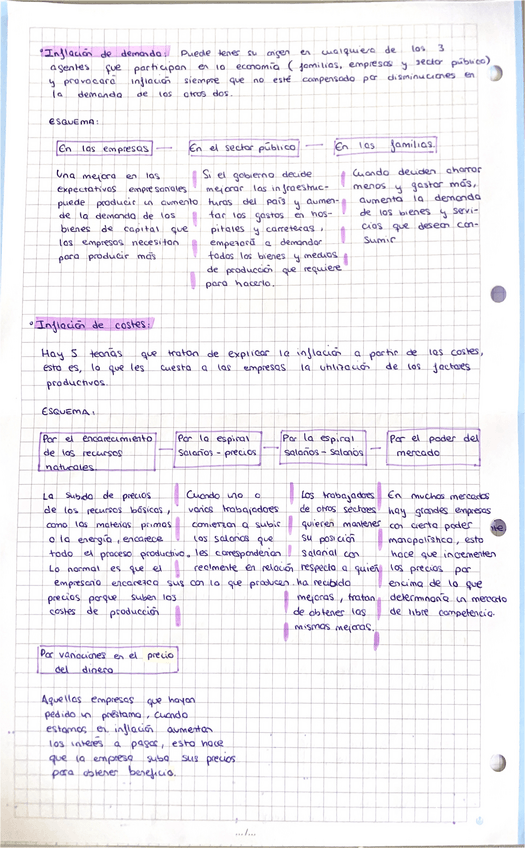 Inflación de demanda: Puede tener su origen en cualquiera de los 3
agentes que participan en la economía (familias, empresas y sector público)
y provocará inflación siempre que no esté compensado por disminuciones en
la demanda de los otros dos.
ESQUEMA:
En las empresas
En el sector público
En las familias.
Una mejora en las
expectativas empresariales
puede producir un aumento
de la demanda de los
bienes de capital que
las empresas necesitan
para producir más
Si el gobierno decide
mejorar las infraestruc-
turas del país y aumen-
tar los gastos en hos-
pitales y carreteras,
empezará a demandar
todos los bienes y medios
de producción que requiere
para hacerlo.
Cuando deciden ahorrar
menos y gastar más,
aumenta la demanda
de los bienes y servi-
cios que desean con-
sumir
Inflación de costes:
Hay 5 teorías que tratan de explicar la inflación a partir de los costes,
esto es, lo que les cuesta a las empresas la utilización de los factores
productivos.
ESQUEMA:
Por el encarecimiento
de los recursos
naturales.
Por la espiral
salarios - precios
Por la espiral
salarios - salarios
Por el poder del
mercado
La subida de precios
de los recursos básicos,
como las materias primas
o la energía, encarece
todo el proceso productivo.
Lo normal es que el
empresario encarezca sus
precios porque suben los
costes de producción
Cuando uno o
varios trabajadores
comienzan a subir
los salarios que
les corresponderían
realmente en relación
con lo que producen.
Los trabajadores
de otros sectores
quieren mantener
su posición
salarial con
respecto a quien
ha recibido
mejoras, tratan
de obtener las
mismas mejoras.
En muchos mercados
hay grandes empresas
con cierto poder
monopolístico, esto
hace que incrementen
los precios por
encima de lo que
determinaría un mercado
de libre competencia.
Por variaciones en el precio
del dinero
Aquellas empresas que hayan
pedido un préstamo, cuando
estamos en inflación aumentan
los interés a pagar, esto hace
que la empresa suba sus precios
para obtener beneficio.
.../...